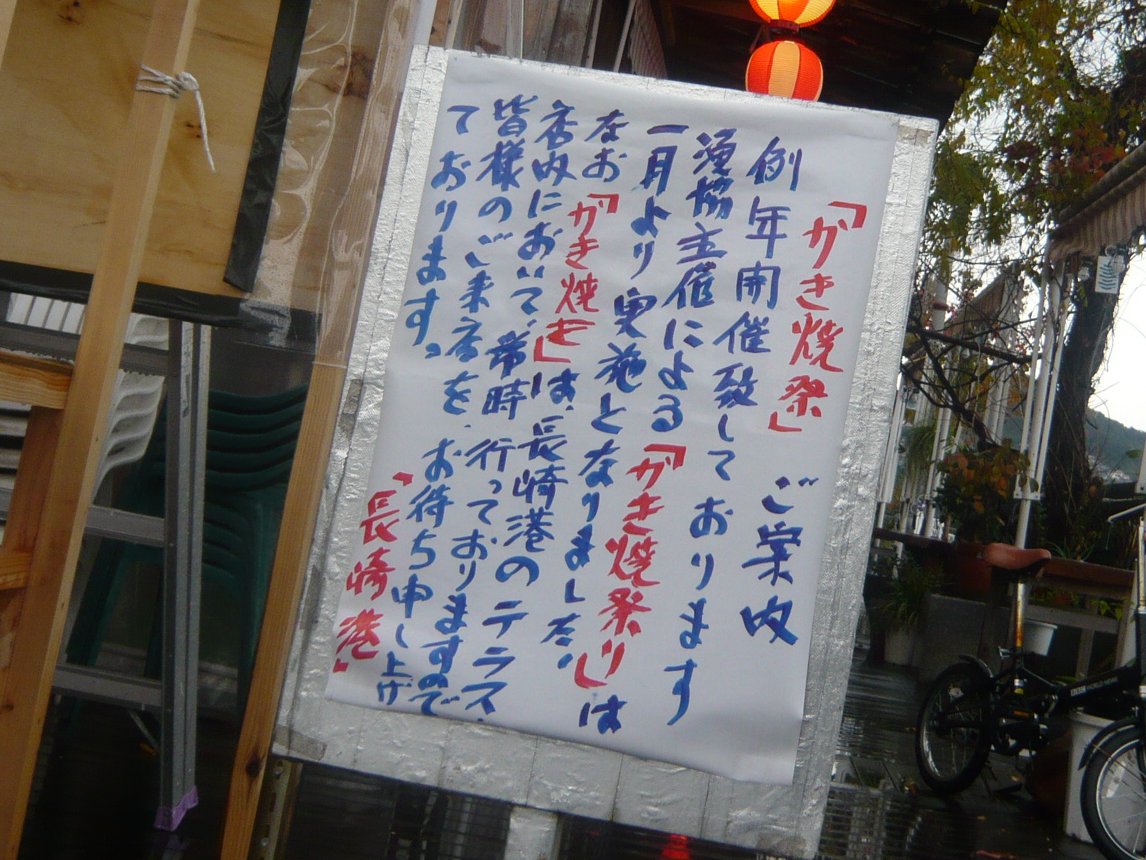 「がき焼祭」ご案内
例年開催致しております
漁協主催による「がき焼祭り」は
一月より実施となりました。
なお「がき焼き」は、長崎港のテラス、
店内において、常時行っておりますので
皆様のご来店を、お待ち申し上げ
ております。
「長崎港」